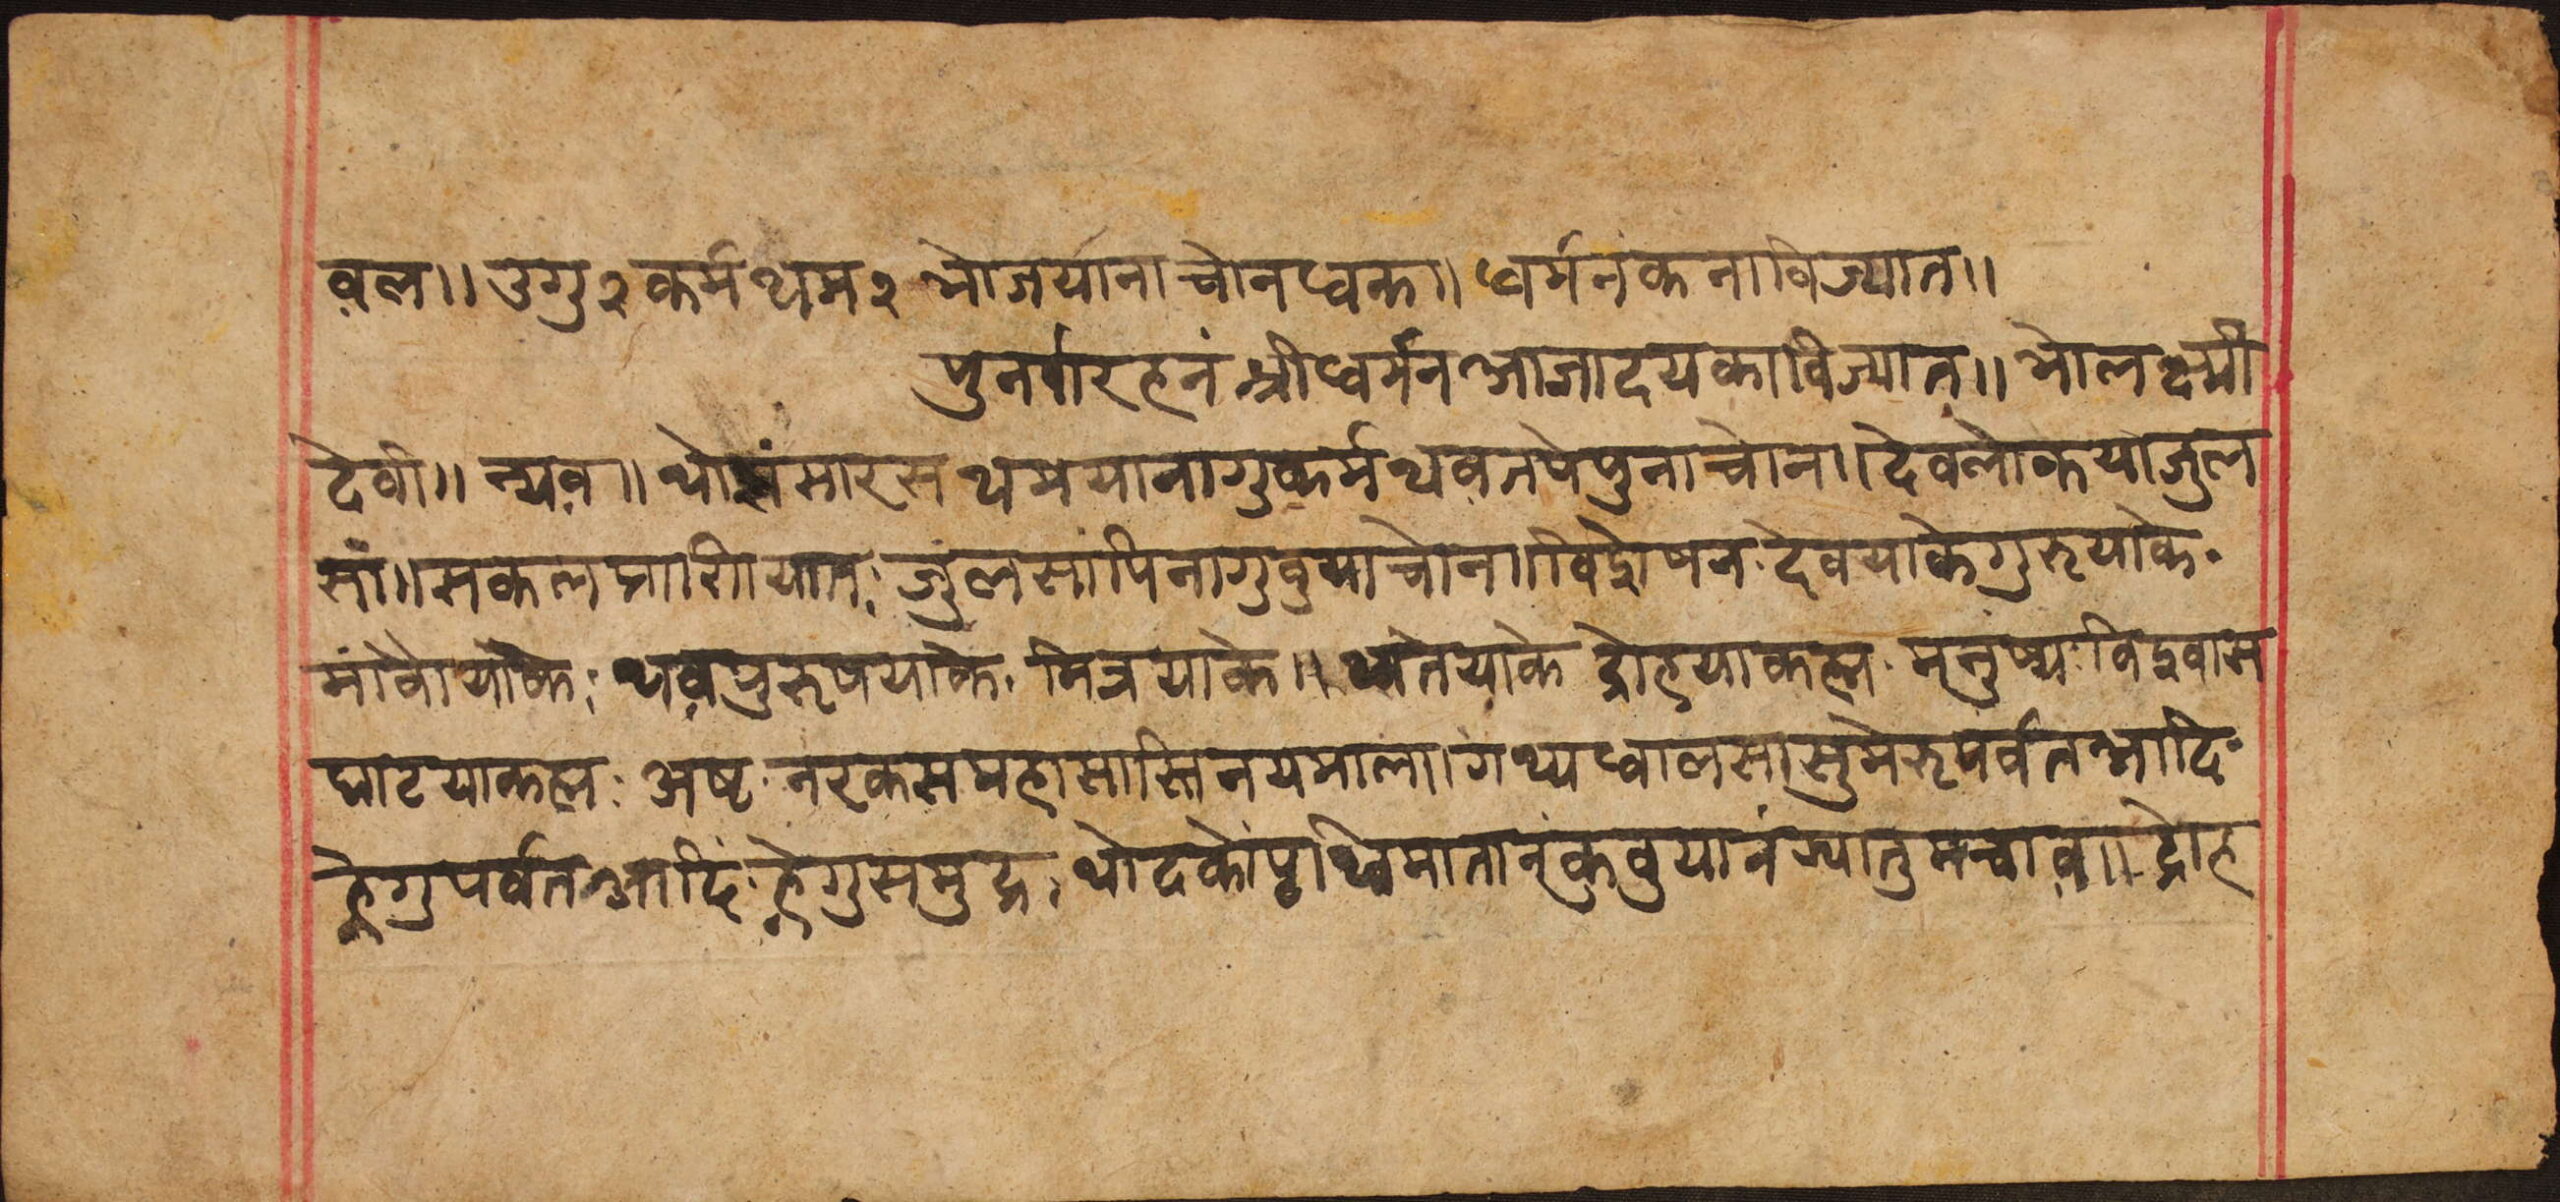 व़ल॥ उगु२ कर्म थम२ भोजर्याना चोनध्वक॥ धर्मनं कनाविज्यात॥
पुनर्वारहनं श्रीधर्मन आज्ञादयकाविज्यात॥ भोलक्ष्मी
देवी॥ न्यव़॥ थोसंसारस थमयानागुकर्म थव़तपेपुनाचोन॥ देवलोकयाजुल
सां॥ सकलप्राणियात. जुलसांपिनागुवुयाचोन॥ विशेषन. देवयाके गुरुयाके.
मांवौयाके. थव़पुरुषयाके. मित्रयाके॥ थ्वतेयाके द्रोहयाकह्म. मनुष्य. विश्वास
घाटयाकह्म. अष्ट. नरकसमहासास्तिनयमाला। गथ्यध्वालसा सुमेरुपर्वतआदि.
हेगुपर्वतआदिं. हेगुसमुद्र. थोदकों पृथ्विमातानं कुवुयानं ज्यातुमच्वाव़॥ द्रोह